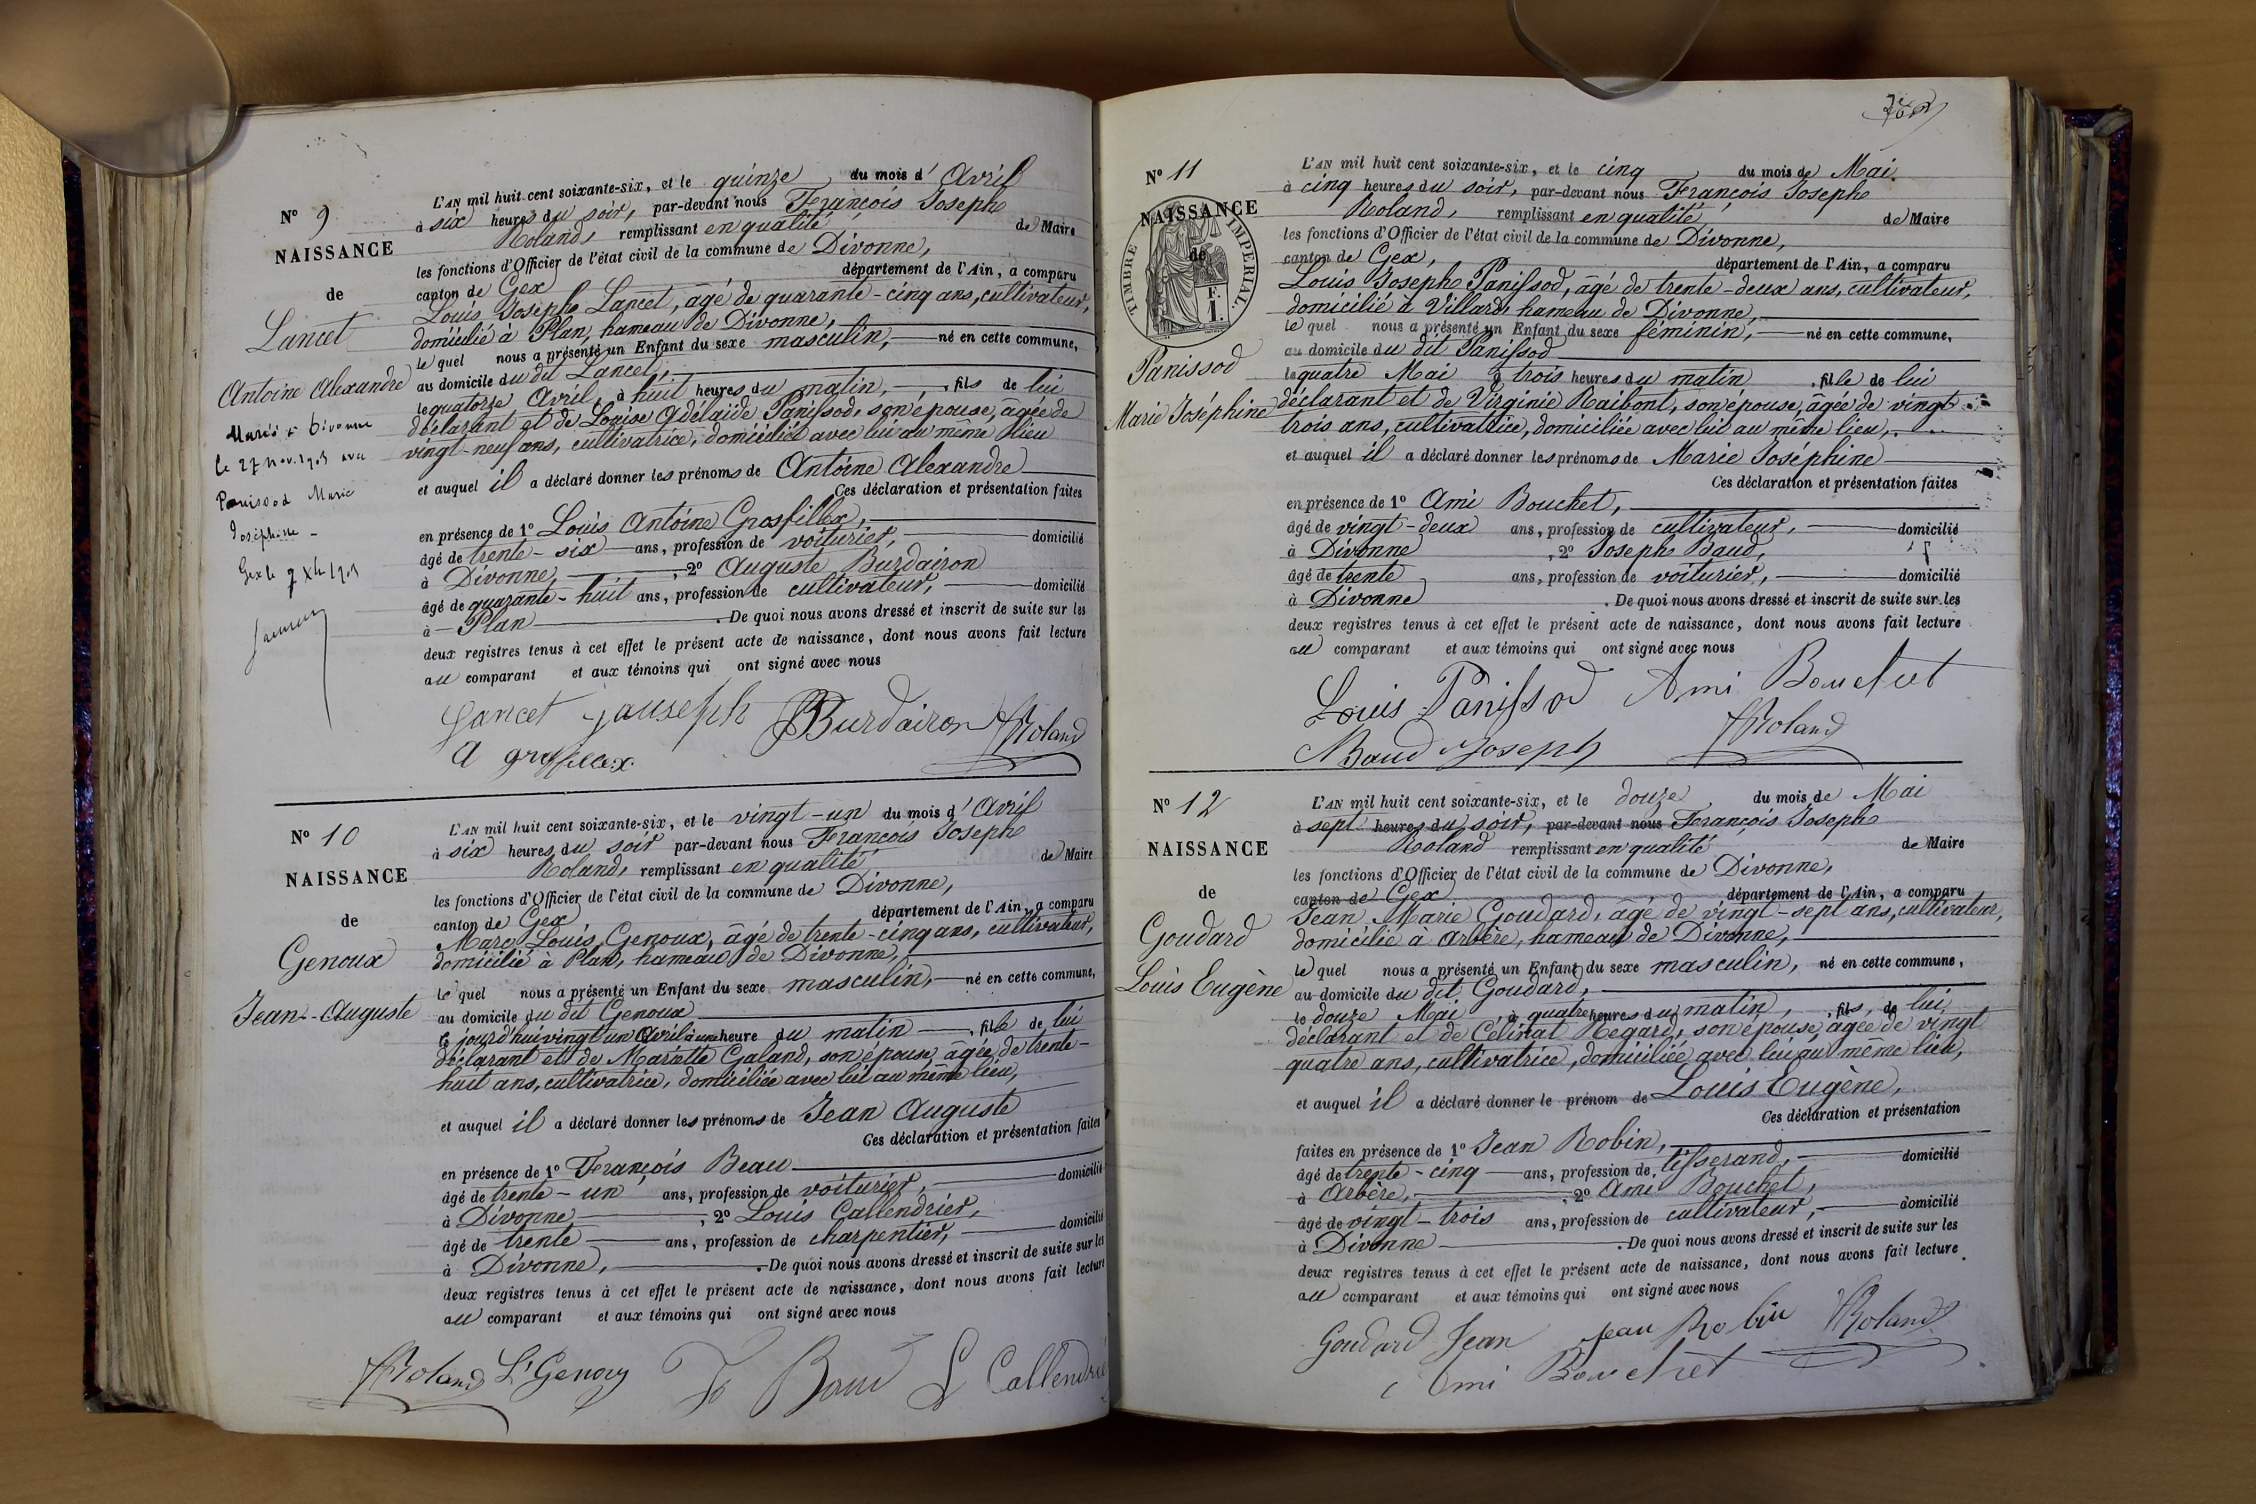 N° 9
NAISSANCE
de
Lancet
Antoine Alexandre
Marié à Divonne
le 27 nov. 1903 avec
Panissod Marie
Joséphine
L'AN mil huit cent soixante-six, et le quinze du mois d' Avril
à six heures du soir, par-devant nous François Joseph
Roland, remplissant en qualité de Maire
les fonctions d'Officier de l'état civil de la commune de Divonne,
canton de Gex département de l'Ain, a comparu
Louis Joseph Lancet, âgé de quarante-cinq ans, cultivateur,
domicilié à Plan, hameau de Divonne,
le quel nous a présenté un Enfant du sexe masculin, né en cette commune,
au domicile du dit Lancet,
le quatorze Avril, à huit heures du matin, fils de lui
déclarant et de Louise Adélaïde Panissod, son épouse, âgée de
vingt-neuf ans, cultivatrice, domiciliée avec lui au même lieu
et auquel il a déclaré donner les prénoms de Antoine Alexandre
Ces déclaration et présentation faites
en présence de 1° Louis Antoine Grosfillex,
âgé de trente-six ans, profession de voiturier, domicilié
à Divonne, 2° Auguste Burdairon
âgé de quarante-huit ans, profession de cultivateur, domicilié
à Plan . De quoi nous avons dressé et inscrit de suite sur les
deux registres tenus à cet effet le présent acte de naissance, dont nous avons fait lecture
au comparant et aux témoins qui ont signé avec nous
Lancet Jauseph Burdairon Roland
A grosfillex
N° 10
NAISSANCE
de
Genoux
Jean-Auguste
L'AN mil huit cent soixante-six, et le vingt-un du mois d' Avril
à six heures du soir par-devant nous François Joseph
Roland, remplissant en qualité de Maire
les fonctions d'Officier de l'état civil de la commune de Divonne,
canton de Gex département de l'Ain, a comparu
Marc Louis Genoux, âgé de trente-cinq ans, cultivateur,
domicilié à Plan, hameau de Divonne,
le quel nous a présenté un Enfant du sexe masculin, né en cette commune,
au domicile du dit Genoux
ce jourd'hui vingt un Avril à une heure du matin, fils de lui
déclarant et de Mariette Galand, son épouse, âgée de trente-
huit ans, cultivatrice, domiciliée avec lui au même lieu,
et auquel il a déclaré donner les prénoms de Jean Auguste
Ces déclaration et présentation faites
en présence de 1° François Beau
âgé de trente-un ans, profession de voiturier, domicilié
à Divonne, 2° Louis Callendrier,
âgé de trente ans, profession de charpentier, domicilié
à Divonne, . De quoi nous avons dressé et inscrit de suite sur les
deux registres tenus à cet effet le présent acte de naissance, dont nous avons fait lecture
au comparant et aux témoins qui ont signé avec nous
Roland L' Genoux L Callendrié
N° 11
NAISSANCE
de
TIMBRE IMPERIAL.
Panissod
Marie Joséphine
L'AN mil huit cent soixante-six, et le cinq du mois de Mai
à cinq heures du soir, par-devant nous François Joseph
Roland, remplissant en qualité de Maire
les fonctions d'Officier de l'état civil de la commune de Divonne,
canton de Gex, département de l'Ain, a comparu
Louis Joseph Panissod, âgé de trente-deux ans, cultivateur,
domicilié à Villard, hameau de Divonne,
le quel nous a présenté un Enfant du sexe féminin, né en cette commune,
au domicile du dit Panissod
le quatre Mai à trois heures du matin, fille de lui
déclarant et de Virginie Raibont, son épouse, âgée de vingt
trois ans, cultivatrice, domiciliée avec lui au même lieu,
et auquel il a déclaré donner les prénoms de Marie Joséphine
Ces déclaration et présentation faites
en présence de 1° Ami Bouchet,
âgé de vingt-deux ans, profession de cultivateur, domicilié
à Divonne, 2° Joseph Baud,
âgé de trente ans, profession de voiturier, domicilié
à Divonne . De quoi nous avons dressé et inscrit de suite sur les
deux registres tenus à cet effet le présent acte de naissance, dont nous avons fait lecture
au comparant et aux témoins qui ont signé avec nous
Louis Panissod Ami Bouchet
Baud Joseph Roland
N° 12
NAISSANCE
de
Goudard
Louis Eugène
L'AN mil huit cent soixante-six, et le douze du mois de Mai
à sept heures du soir, par-devant nous François Joseph
Roland remplissant en qualité de Maire
les fonctions d'Officier de l'état civil de la commune de Divonne,
canton de Gex département de l'Ain, a comparu
Jean Marie Goudard, âgé de vingt-sept ans, cultivateur,
domicilié à Arbère, hameau de Divonne,
le quel nous a présenté un Enfant du sexe masculin, né en cette commune,
au domicile du dit Goudard,
le douze Mai, à quatre heures du matin, fils, de lui
déclarant et de Célinat Regard, son épouse, âgée de vingt
quatre ans, cultivatrice, domiciliée avec lui au même lieu,
et auquel il a déclaré donner le prénom de Louis Eugène,
Ces déclaration et présentation
faites en présence de 1° Jean Robin,
âgé de trente-cinq ans, profession de tisserand, domicilié
à Arbère, 2° Ami Bouchet,
âgé de vingt-trois ans, profession de cultivateur, domicilié
à Divonne . De quoi nous avons dressé et inscrit de suite sur les
deux registres tenus à cet effet le présent acte de naissance, dont nous avons fait lecture
au comparant et aux témoins qui ont signé avec nous
Goudard Jean Jean Robin Roland
Ami Bouchet